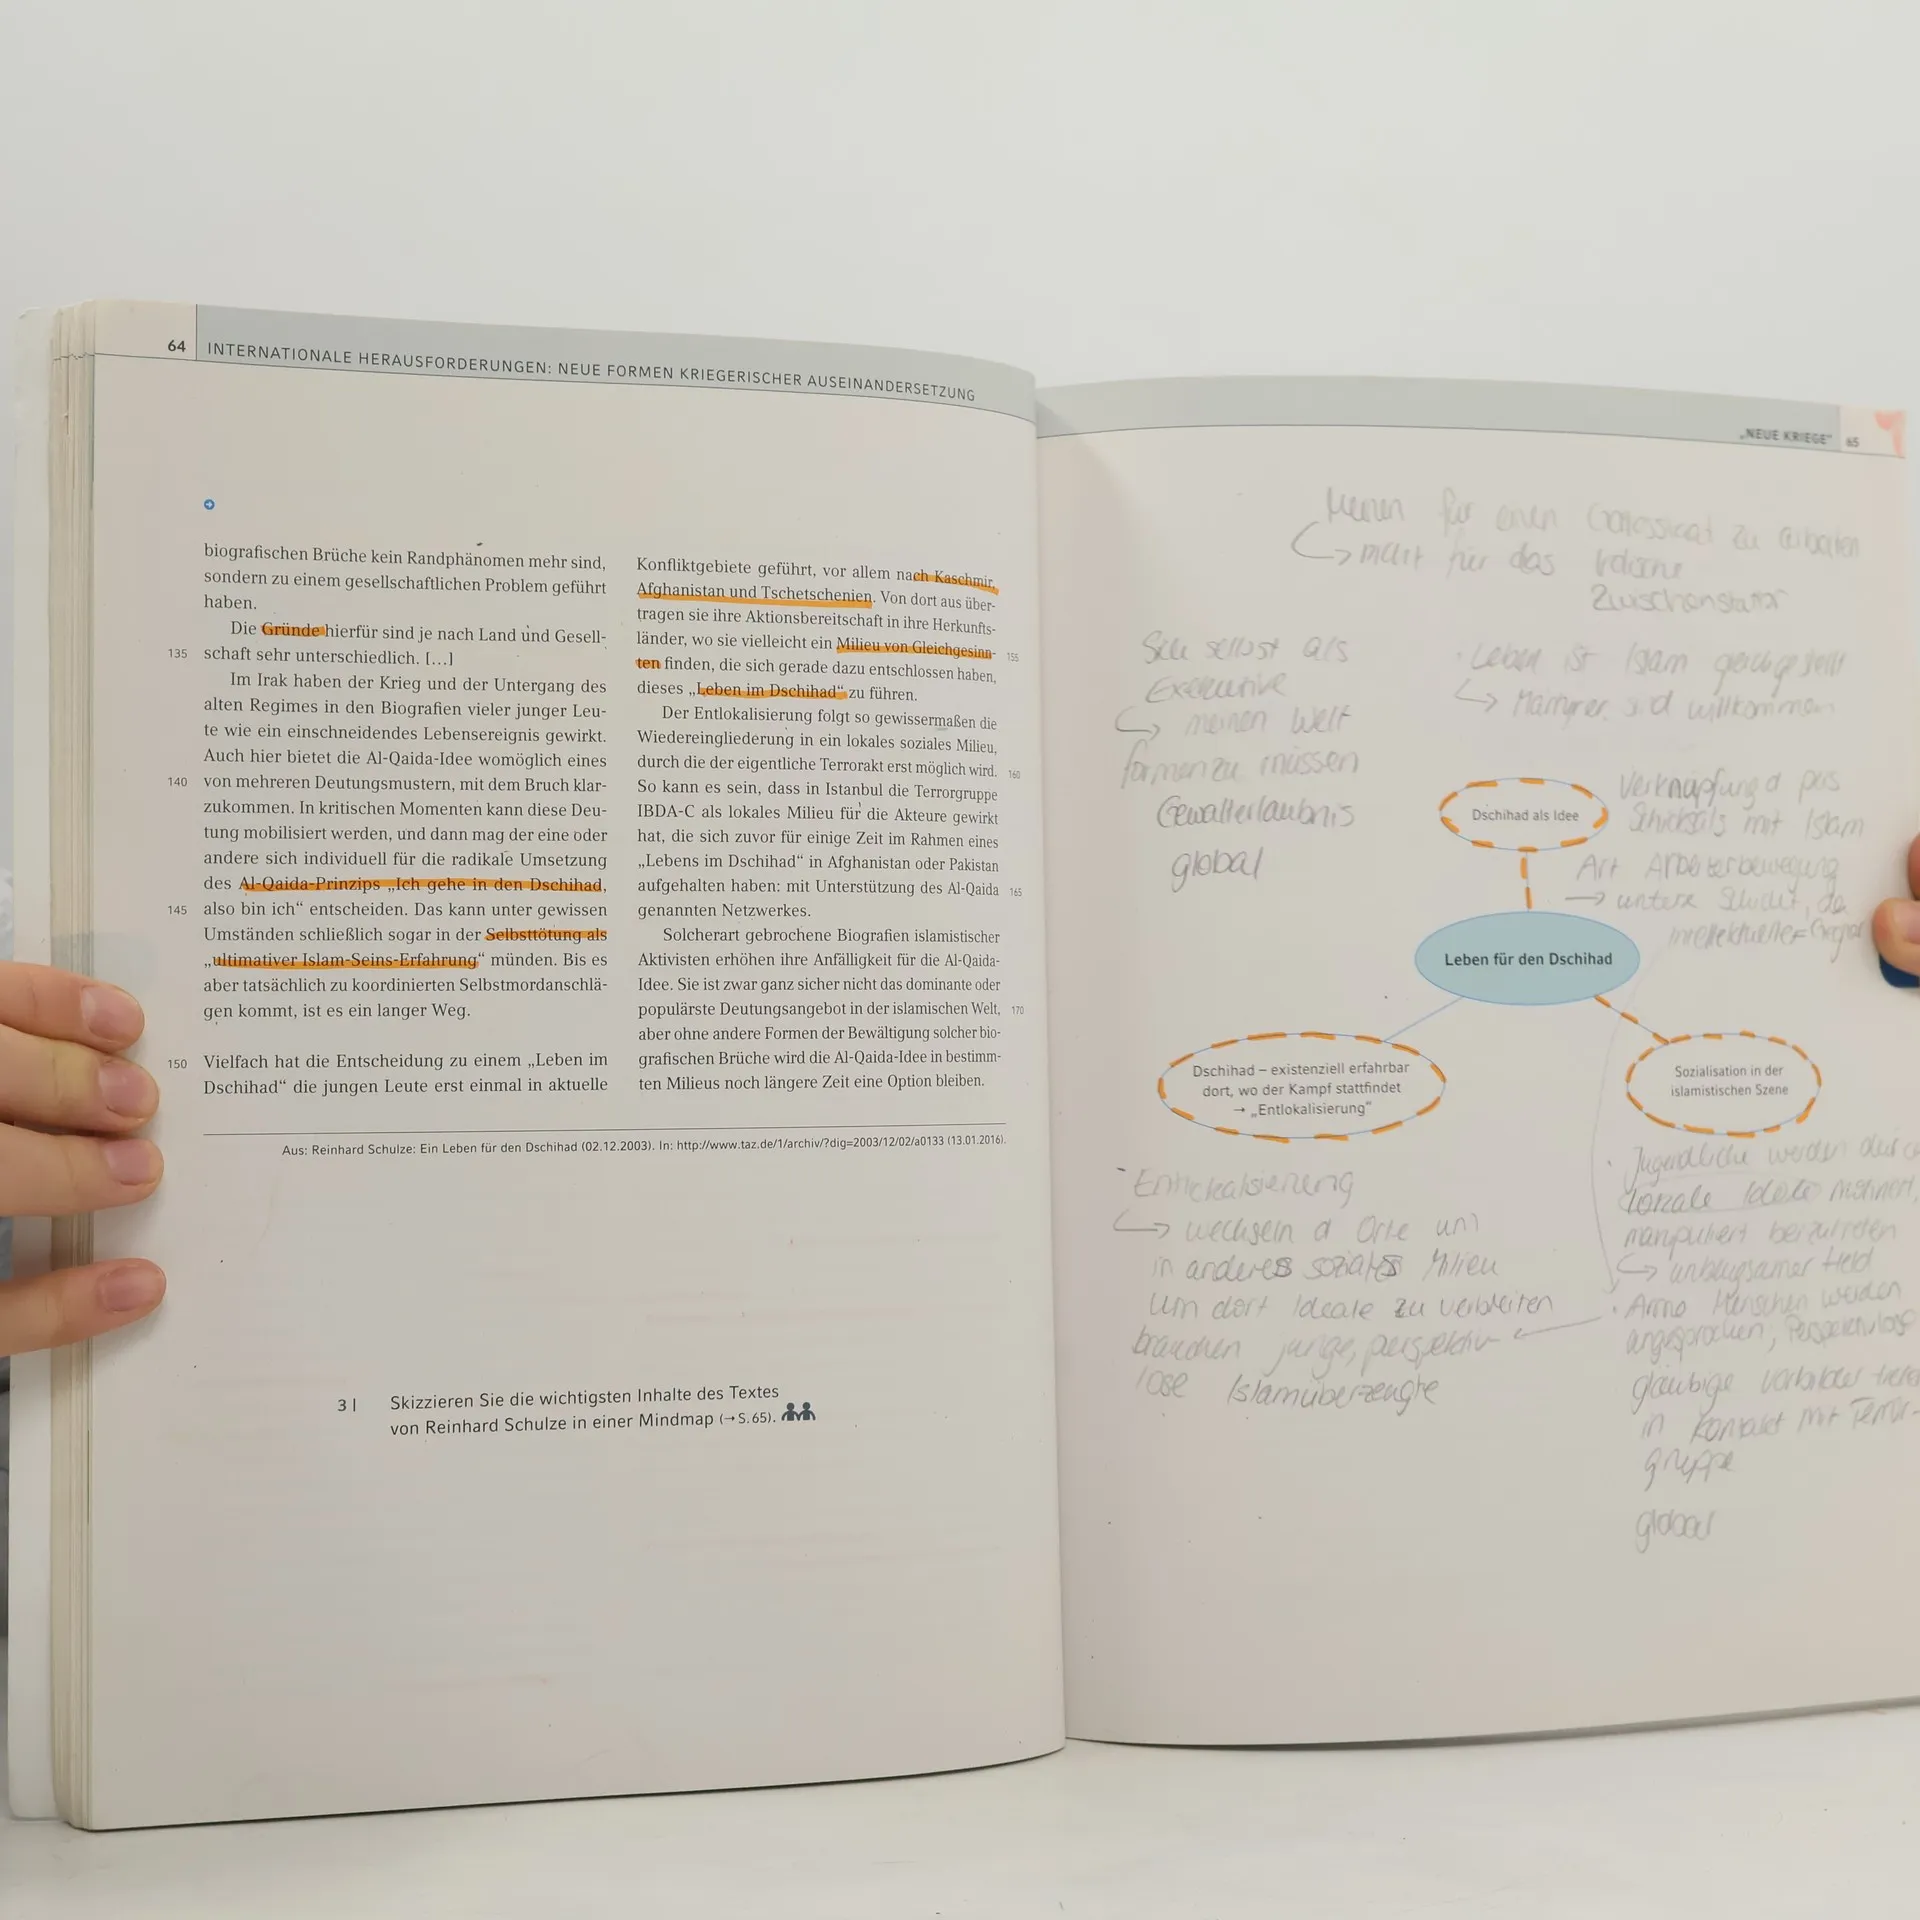 64 INTERNATIONALE HERAUSFORDERUNGEN: NEUE FORMEN KRIEGERISCHER AUSEINANDERSETZUNG
biografischen Brüche kein Randphänomen mehr sind,
sondern zu einem gesellschaftlichen Problem geführt
haben.
Die Gründe hierfür sind je nach Land und Gesell-
135 schaft sehr unterschiedlich. [...]
Im Irak haben der Krieg und der Untergang des
alten Regimes in den Biografien vieler junger Leu-
te wie ein einschneidendes Lebensereignis gewirkt.
Auch hier bietet die Al-Qaida-Idee womöglich eines
140 von mehreren Deutungsmustern, mit dem Bruch klar-
zukommen. In kritischen Momenten kann diese Deu-
tung mobilisiert werden, und dann mag der eine oder
andere sich individuell für die radikale Umsetzung
des Al-Qaida-Prinzips „Ich gehe in den Dschihad,
145 also bin ich“ entscheiden. Das kann unter gewissen
Umständen schließlich sogar in der Selbsttötung als
„ultimativer Islam-Seins-Erfahrung“ münden. Bis es
aber tatsächlich zu koordinierten Selbstmordanschlä-
gen kommt, ist es ein langer Weg.
150 Vielfach hat die Entscheidung zu einem „Leben im
Dschihad“ die jungen Leute erst einmal in aktuelle
Konfliktgebiete geführt, vor allem nach Kaschmir,
Afghanistan und Tschetschenien. Von dort aus über-
tragen sie ihre Aktionsbereitschaft in ihre Herkunfts-
länder, wo sie vielleicht ein Milieu von Gleichgesinn- 155
ten finden, die sich gerade dazu entschlossen haben,
dieses „Leben im Dschihad“ zu führen.
Der Entlokalisierung folgt so gewissermaßen die
Wiedereingliederung in ein lokales soziales Milieu,
durch die der eigentliche Terrorakt erst möglich wird. 160
So kann es sein, dass in Istanbul die Terrorgruppe
IBDA-C als lokales Milieu für die Akteure gewirkt
hat, die sich zuvor für einige Zeit im Rahmen eines
„Lebens im Dschihad“ in Afghanistan oder Pakistan
aufgehalten haben: mit Unterstützung des Al-Qaida 165
genannten Netzwerkes.
Solcherart gebrochene Biografien islamistischer
Aktivisten erhöhen ihre Anfälligkeit für die Al-Qaida-
Idee. Sie ist zwar ganz sicher nicht das dominante oder
populärste Deutungsangebot in der islamischen Welt, 170
aber ohne andere Formen der Bewältigung solcher bio-
grafischen Brüche wird die Al-Qaida-Idee in bestimm-
ten Milieus noch längere Zeit eine Option bleiben.
Aus: Reinhard Schulze: Ein Leben für den Dschihad (02.12.2003). In: http://www.taz.de/1/archiv/?dig=2003/12/02/a0133 (13.01.2016).
3 | Skizzieren Sie die wichtigsten Inhalte des Textes
von Reinhard Schulze in einer Mindmap (→ S. 65).
„NEUE KRIEGE“ 65
Meinen für einen Gottesstaat zu arbeiten
nicht für das irdische
Sich selbst als
Exekutive
meinen Welt
formen zu müssen
Gewalterlaubnis
global
Leben ist Islam gleichgestellt
Märtyrer sind willkommen
Dschihad als Idee
Verknüpfung d pers
Schicksals mit Islam
Art Arbeiterbewegung
untere Schicht, da
Leben für den Dschihad
Dschihad – existenziell erfahrbar
dort, wo der Kampf stattfindet
→ „Entlokalisierung“
Sozialisation in der
islamistischen Szene
wechseln d Orte um
in anderes soziales Milieu
um dort Ideale zu verbreiten
brauchen junge, perspektiv
lose Islamüberzeugte
Jugendliche werden durch
lokale Ideale
manipuliert beizutreten
unbeugsamer Held
Menschen werden
angesprochen, Perspektivlose
gläubige
in Kontakt mit Terror-
gruppe
global